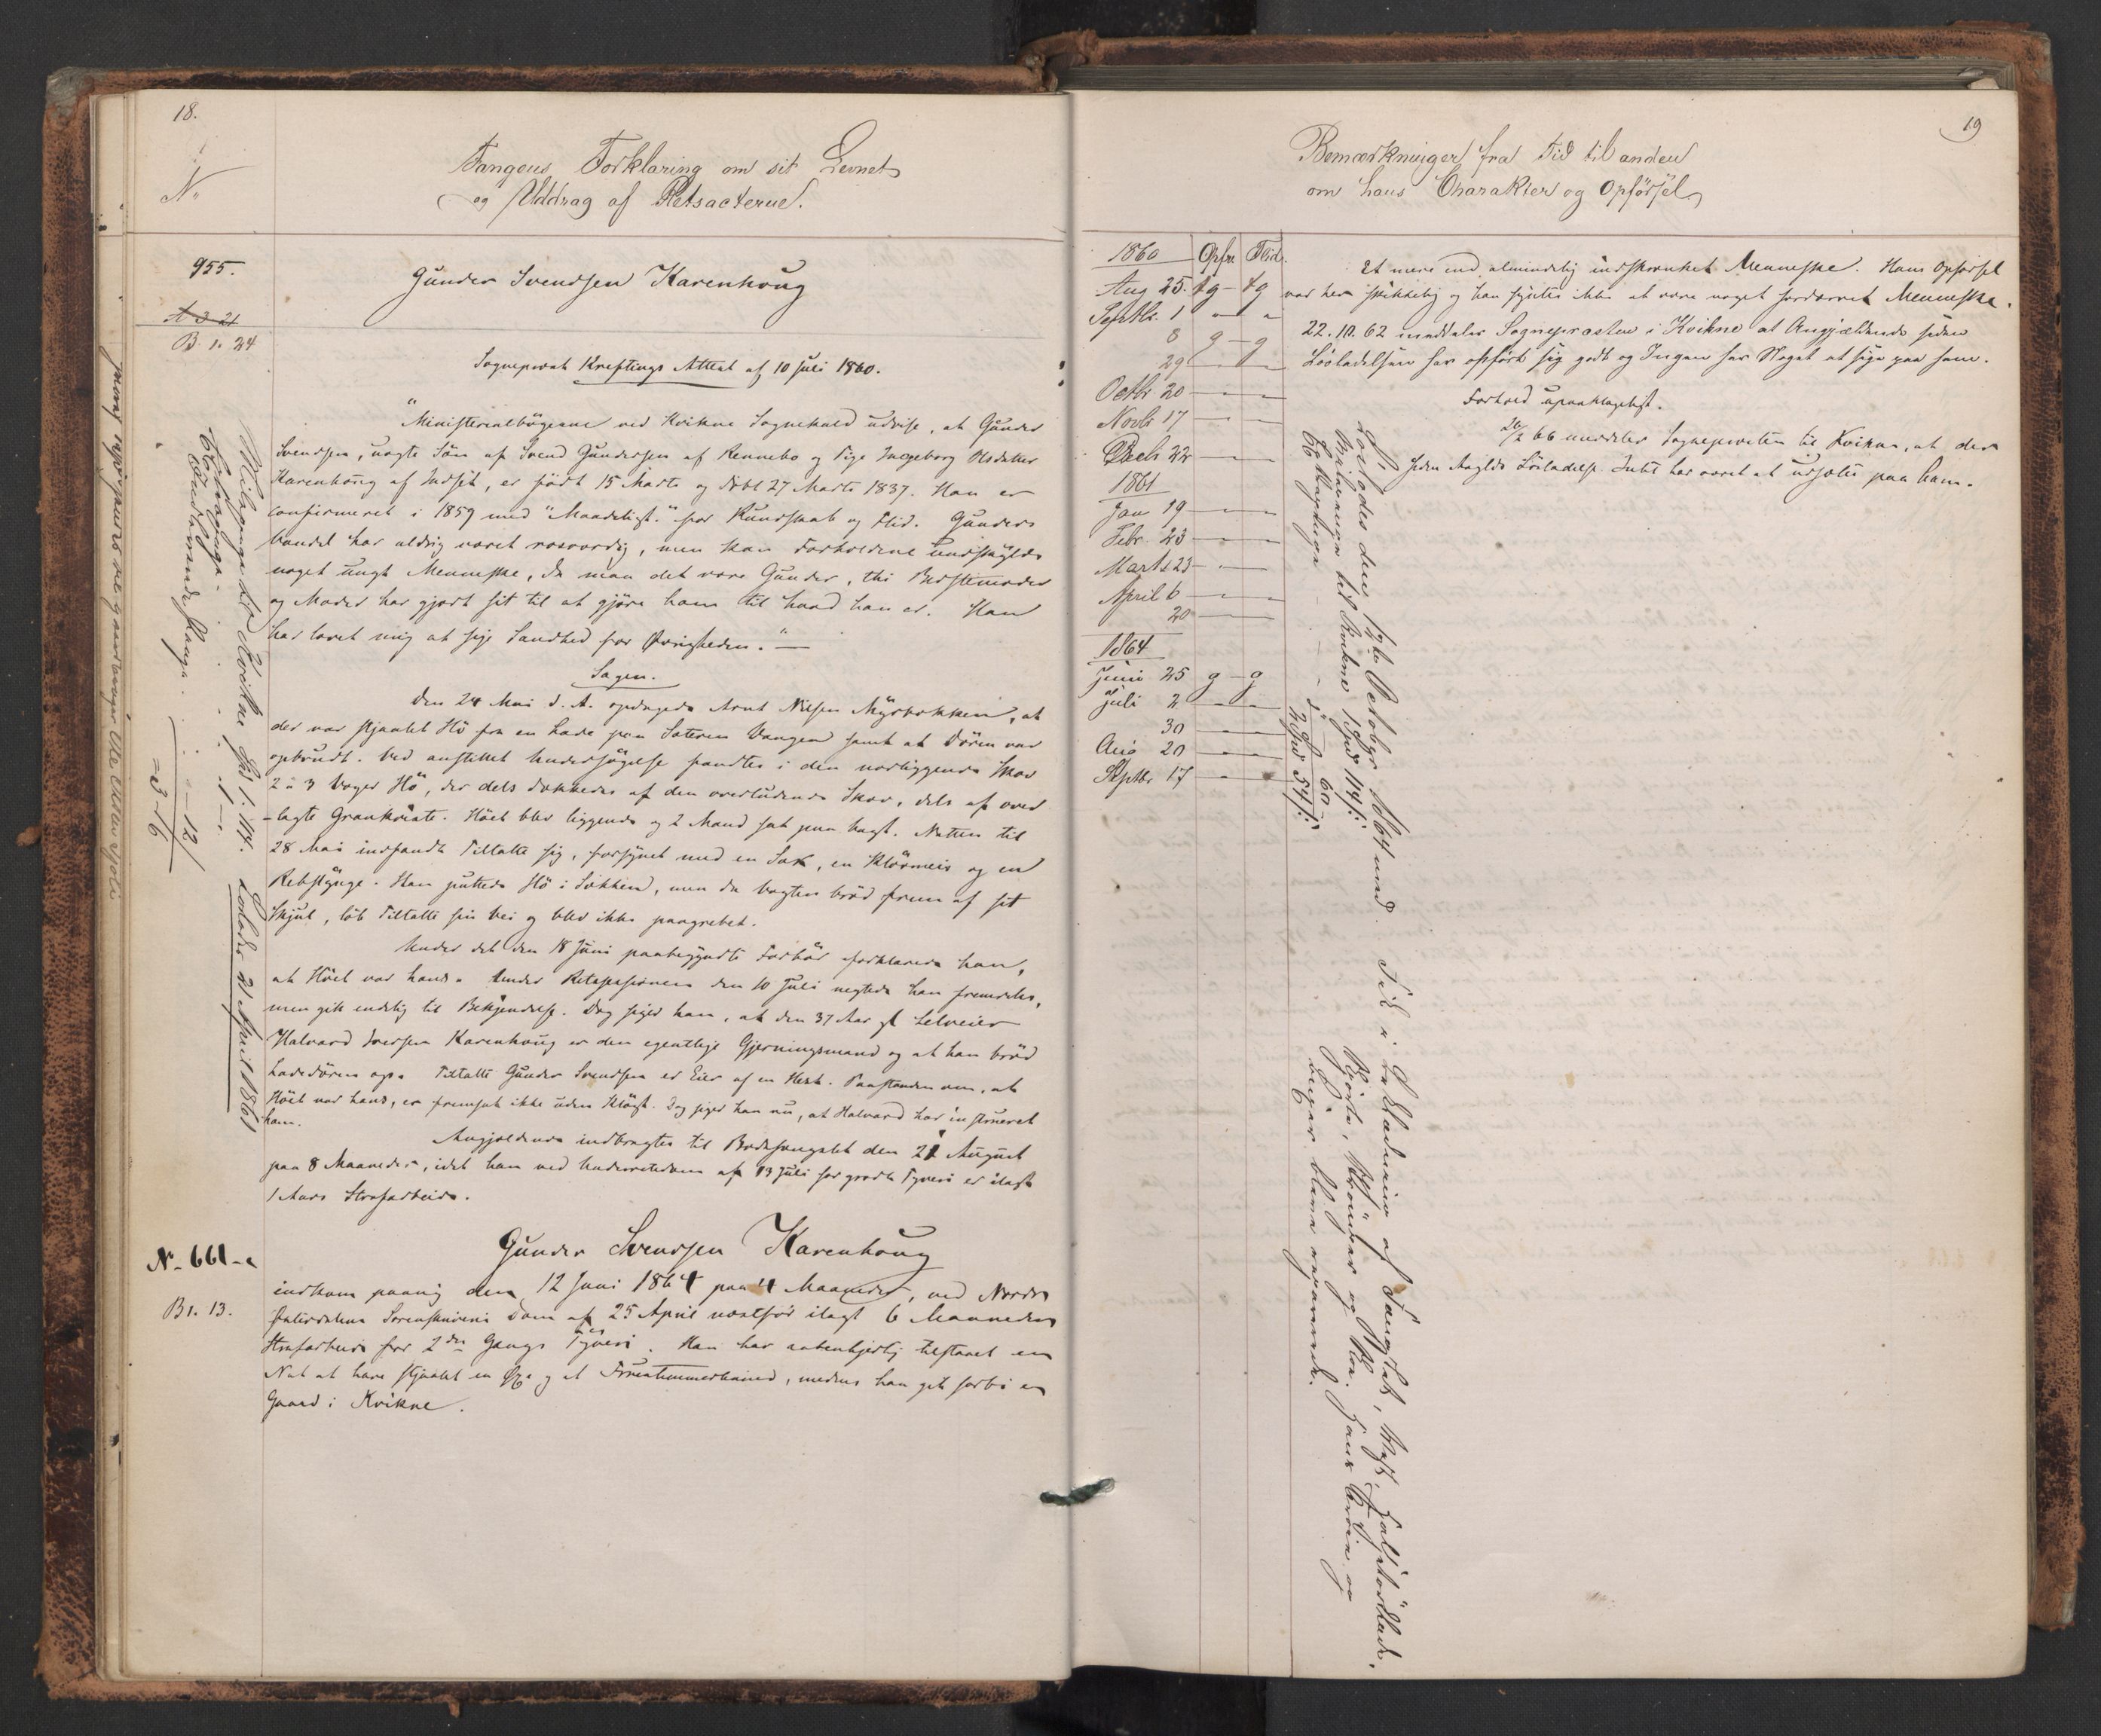 18.
No
Fangens Forklaring om sit Levnet
og Uddrag af Retsacterne.
955.
A 3 21
B. 1. 24
Gunder Svendsen Karenhoug
Sogneprest Kreftings Attest af 10 Juli 1860.
"Ministerialbögerne ved Kvikne Sognekald udvise, at Gunder
Svendsen, uægte Sön af Svend Gundersen af Rennebo og Pige Ingeborg Olsdatter
Karenhoug af Indset, er födt 15 Marts og döbt 27 Marts 1837. Han er
confirmeret i 1859 med "Maadeligt." for Kundskab og Flid. Gunders
Vandel har aldrig været rosværdig, men kan Forholdene undskylde
noget ungt Menneske, da maa det være Gunder, thi Bedstemoder
og Moder har gjort sit til at gjöre ham til hvad han er. Han
har lovet mig at sige Sandhed for Övrigheden." —
Sagen.
Den 24 Mai d. A. opdagede Arnt Nilsen Myrbakken, at
der var stjaalet Hö fra en Lade paa Sæteren Vangen samt at Dören var
opbrudt. Ved anstillet Undersögelse fandtes i den nærliggende Skov
2 à 3 Voger Hö, der dels dækkedes af den overludende Skov, dels af over-
-lagte Grankviste. Höet blev liggende og 2 Mand sat paa Vagt. Natten til
28 Mai indfandt Tiltalte sig, forsynet med en Sæk, en Klövmeis og en
Rebstynge. Han puttede Hö i Sækken, men da Vagten bröd frem af sit
Skjul, löb Tiltalte sin Vei og blev ikke paagrebet.
Under det den 18 Juni paabegyndte Forhör forklarede han,
at Höet var hans. Under Retssessionen den 10 Juli negtede han fremdeles,
men gik endelig til Bekjendelse. Dog siger han, at den 37 Aar gl Selveier
Halvard Iversen Karenhoug er den egentlige Gjerningsmand og at han bröd
Ladedören op. Tiltalte Gunder Svendsen er Eier af en Hest. Paastanden om, at
Höet var hans, er fremsat ikke uden Klögt. Dog siger han nu, at Halvard har instrueret
ham.
Angjeldende indbragtes til Bodsfængslet den 21 August
paa 8 Maaneder, idet han ved Underretsdom af 13 Juli for grovt Tyveri er ilagt
1 Aars Strafarbeide.
Lösladt 21 April 1861
No 661
B1. 13.
Gunder Svendsen Karenhoug
indkom paany den 12 Juni 1864 paa 4 Maaneder, ved Nordre
Österdalens Sorenskriveris Dom af 25 April næstför ilagt 6 Maaneders
Strafarbeide for 2den Gangs Tyveri. Han har aabenhjertig tilstaaet en
Nat at have stjaalet en Öxe og et Fruentimmerskind, medens han gik forbi en
Gaard i Kvikne.
19
Bemærkninger fra Tid til anden
om hans Charakter og Opförsel
1860 Opför. Flid.
Aug 25. tg - tg
Septbr. 1 " "
8 g - g
29 — —
Octbr 20 — —
Novbr 17 — —
Decb 22 — —
1861
Jan 19 — —
Febr 23 — —
Marts 23 — —
April 6 — —
20 — —
1864
Juni 25 g - g
Juli 2 — —
30 — —
Aug 20 — —
Septbr 17 —
Et mere end almindelig indskrænket Menneske. Hans Opförsel
var her skikkelig og han syntes ikke at være noget fordærvet Menneske.
22.10.62 meddeler Sognepresten i Kvikne at Angjældende siden
Lösladelsen har opfört sig godt og Ingen har Noget at sige paa ham.
Forhold upaaklageligt.
26/2 66 meddeler Sognepresten til Kvikne, at der
siden Angjeldes Lösladelse Intet har været at udsætte paa ham.
Löslodes den 12te Octobr 1864 med
Reisepenge til Kvikne 1 Spd 114 s:
2 Spd 54 s: